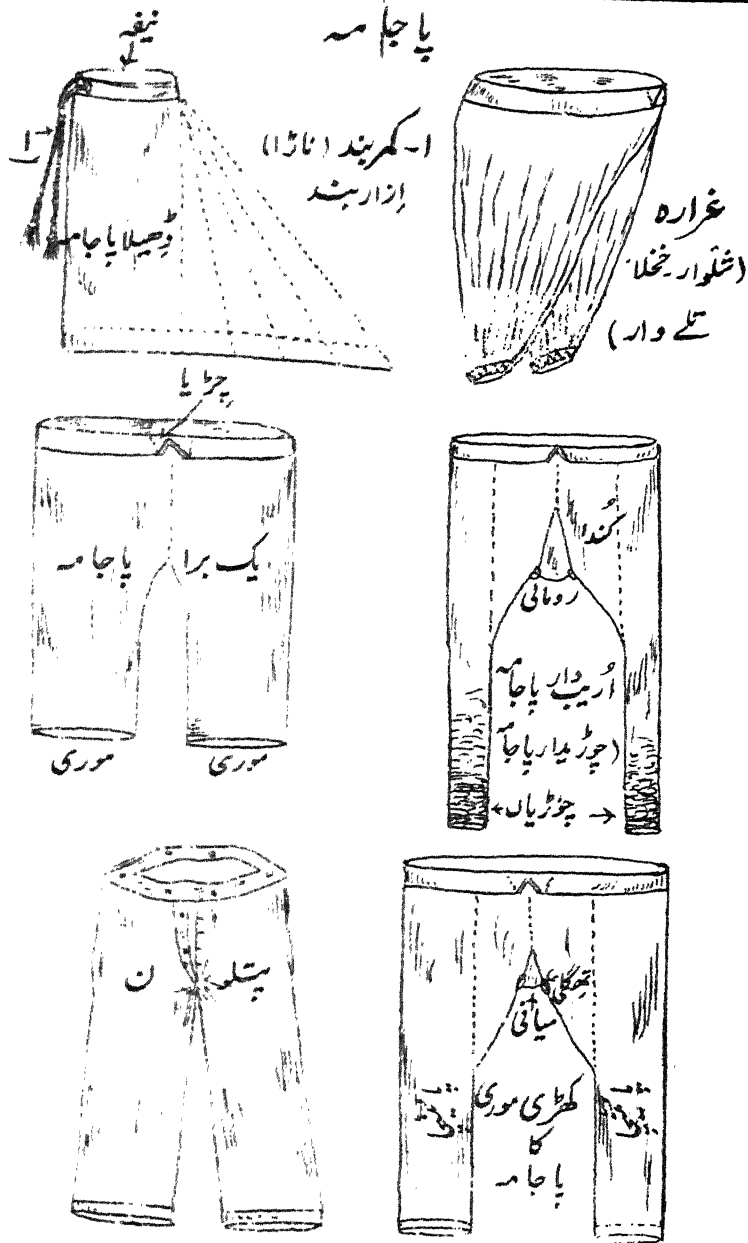 پاجامہ
نیفہ
ا
ا۔ کمربند (ناڑا)
اِزاربند
ڈھیلا پاجامہ
غرارہ
(شلوار۔ خنخلا۔
تلے دار)
چڑیا
یک برا پاجامہ
موری
موری
کُندا
رومالی
اُریب دار پاجامہ
(چوڑیدار پاجامہ
چوڑیاں
پتلون
تھگلی
میانی
کھڑی موری
کا
پاجامہ